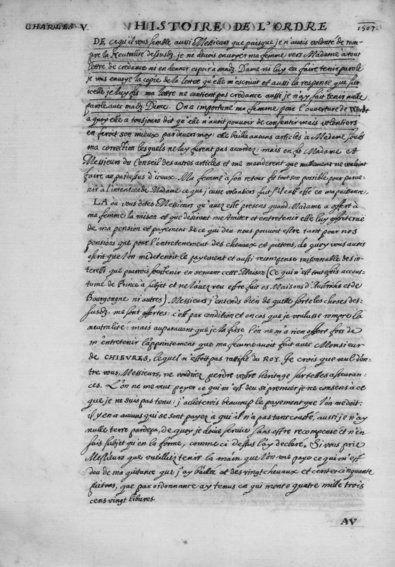 CHARLES V. HISTOIRE DE L'ORDRE 1507.
DE ce qu'il vous semble aussi Messieurs que puisque je n'avois volonté de rom-
pre la Neutralité desusd. je ne devois envoyer ma femme vers Madame a tout
lettre de credance ni en donner copie a mad. Dame ni luy en faire tenir parole
je vous envoye la copie de la lettre qu'elle m'escrivit et aussi la response que
ma lettre ne contient pas credance aussi je n'ay fait tenir nulle
parole aud. mad. Dame. On a importuné ma femme pour l'ouverture de
a quoy elle a tousjours dit qu'elle n'avoit pouvoir de consentir mais volontiers
en feroit son mieux par devers moy: elle bailla aucuns articles a Madame, sous
ma correction lesquels ne luy furent pas accordez; mais en fit Madame et
Messieurs du Conseil des autres articles et me manderent que nullement ne vouloient
faire au pardessus d'iceux. Ma femme a son retour fit tout son possible pour parve-
nir a l'intention de Madame ce que j'eusse volontiers fait s'il eust esté en ma puissance.
LA ou vous dites Messieurs qu'avez esté presens quand Madame a offert a
ma femme la raison et que desirant me traiter et entretenir elle luy offrit
de ma pension et payement de ce qui deu nous pouvoit estre tant pour nos
pensions que pour l'entretenement des chevaux et pietons, de quoy vous aurez
esté que l'on me deteroit le payement et aussi recompense raisonnable des in-
terests que pourrois soustenir en servant cette Maison (Ce qui n'est tousjours accous-
tumé de Prince a subjet et ne l'avez veu estre fait es Maisons d'Austriche et de
Bourgogne ni autres). Messieurs j'entends bien de quelle sorte les choses des-
susd. me sont offertes: c'est par condition et en cas que je voulusse rompre la
neutralité: mais auparavant que je la fisse l'on ne m'a rien offert fors de
m'entretenir l'appointement que ma femme avoit fait avec Monsieur
de CHIEVRES, lequel n'estoit pas ratifié du ROY. Je crois que nul d'en-
tre vous, Messieurs, ne voudroit perdre vostre heritage sur telles asseuran-
ces. L'on ne me veut payer ce qui m'est deu si premier je ne consens a ce
que je ne suis pas tenu: j'achetterois beaucoup le payement que l'on me doit:
il y en a aucuns qui se sont payez a qui il n'a pas tant cousté, aussi je n'ay
nulle terre pardeça, de quoy je doive service sans offre recompense et n'en
suis subjet qu'en la forme, comme ci dessus l'ay declaré. Si vous prie
Messieurs que vueilliez tenir la main que l'on me paye ce qui m'est
deu de ma quitance que j'ay baillée et des vingt chevaux et cent et cinquante
pietons, que par ordonnance ay tenus en qui monte quatre mille trois
cens vingt livres.
AV